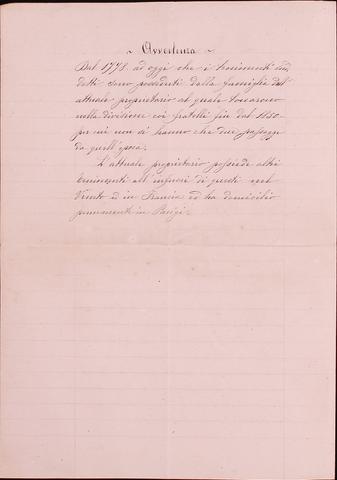 ~ Avvertenza ~
Dal 1778 ad oggi che i tenimenti sud
detti sono posseduti dalla famiglia dell'
attuale proprietario al quale toccarono
nella divisione coi fratelli fin dal 1850
per cui non si hanno che due passaggi
da quell'epoca.
L'attuale proprietario possiede altri
tenimenti all'infuori di questi nel
Veneto e in Francia ed ha domicilio
permanente in Parigi.